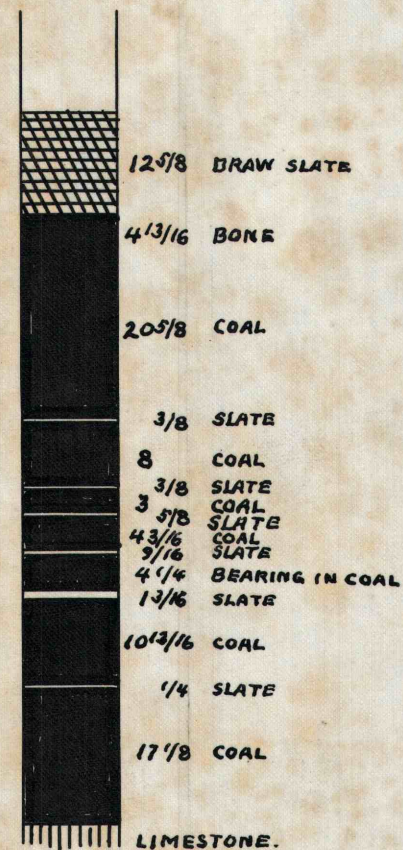 12 5/8 DRAW SLATE
4 13/16 BONE
20 5/8 COAL
3/8 SLATE
8 COAL
3/8 SLATE
3 COAL
5/8 SLATE
4 3/16 COAL
9/16 SLATE
4 1/4 BEARING IN COAL
1 3/16 SLATE
10 13/16 COAL
1/4 SLATE
17 1/8 COAL
LIMESTONE.